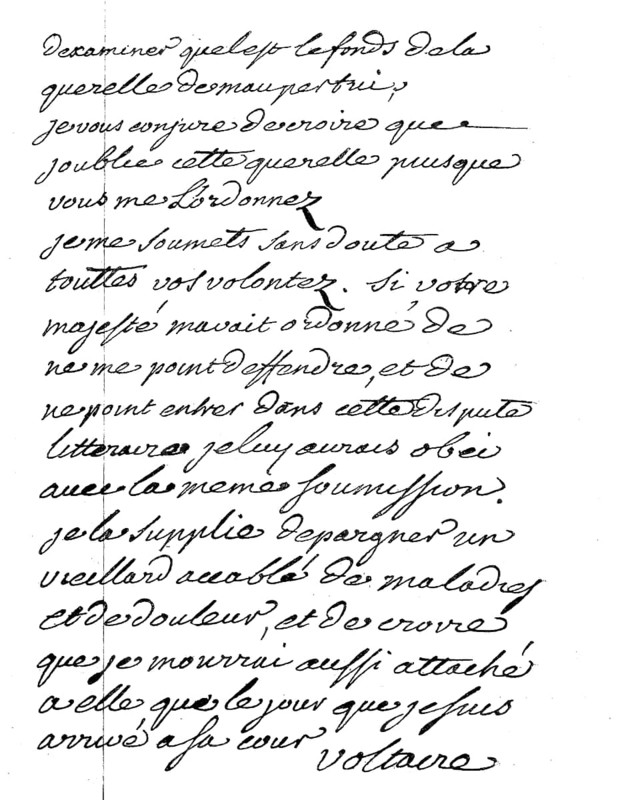 dexaminer quel est le fonds de la
querelle de maupertui,
je vous conjure de croire que
joublie cette querelle puisque
vous me L'ordonnez
je me soumets sans doute a
touttes vos volontez. si votre
majesté mavait ordonné de
ne me point deffendre, et de
ne point entrer dans cette dispute
litteraire je luy aurais obei
avec la meme soumission.
je la supplie depargner un
vieillard accablé de maladies
et de douleur, et de croire
que je mourrai aussi attaché
a elle que le jour que je suis
arrivé a sa cour
voltaire